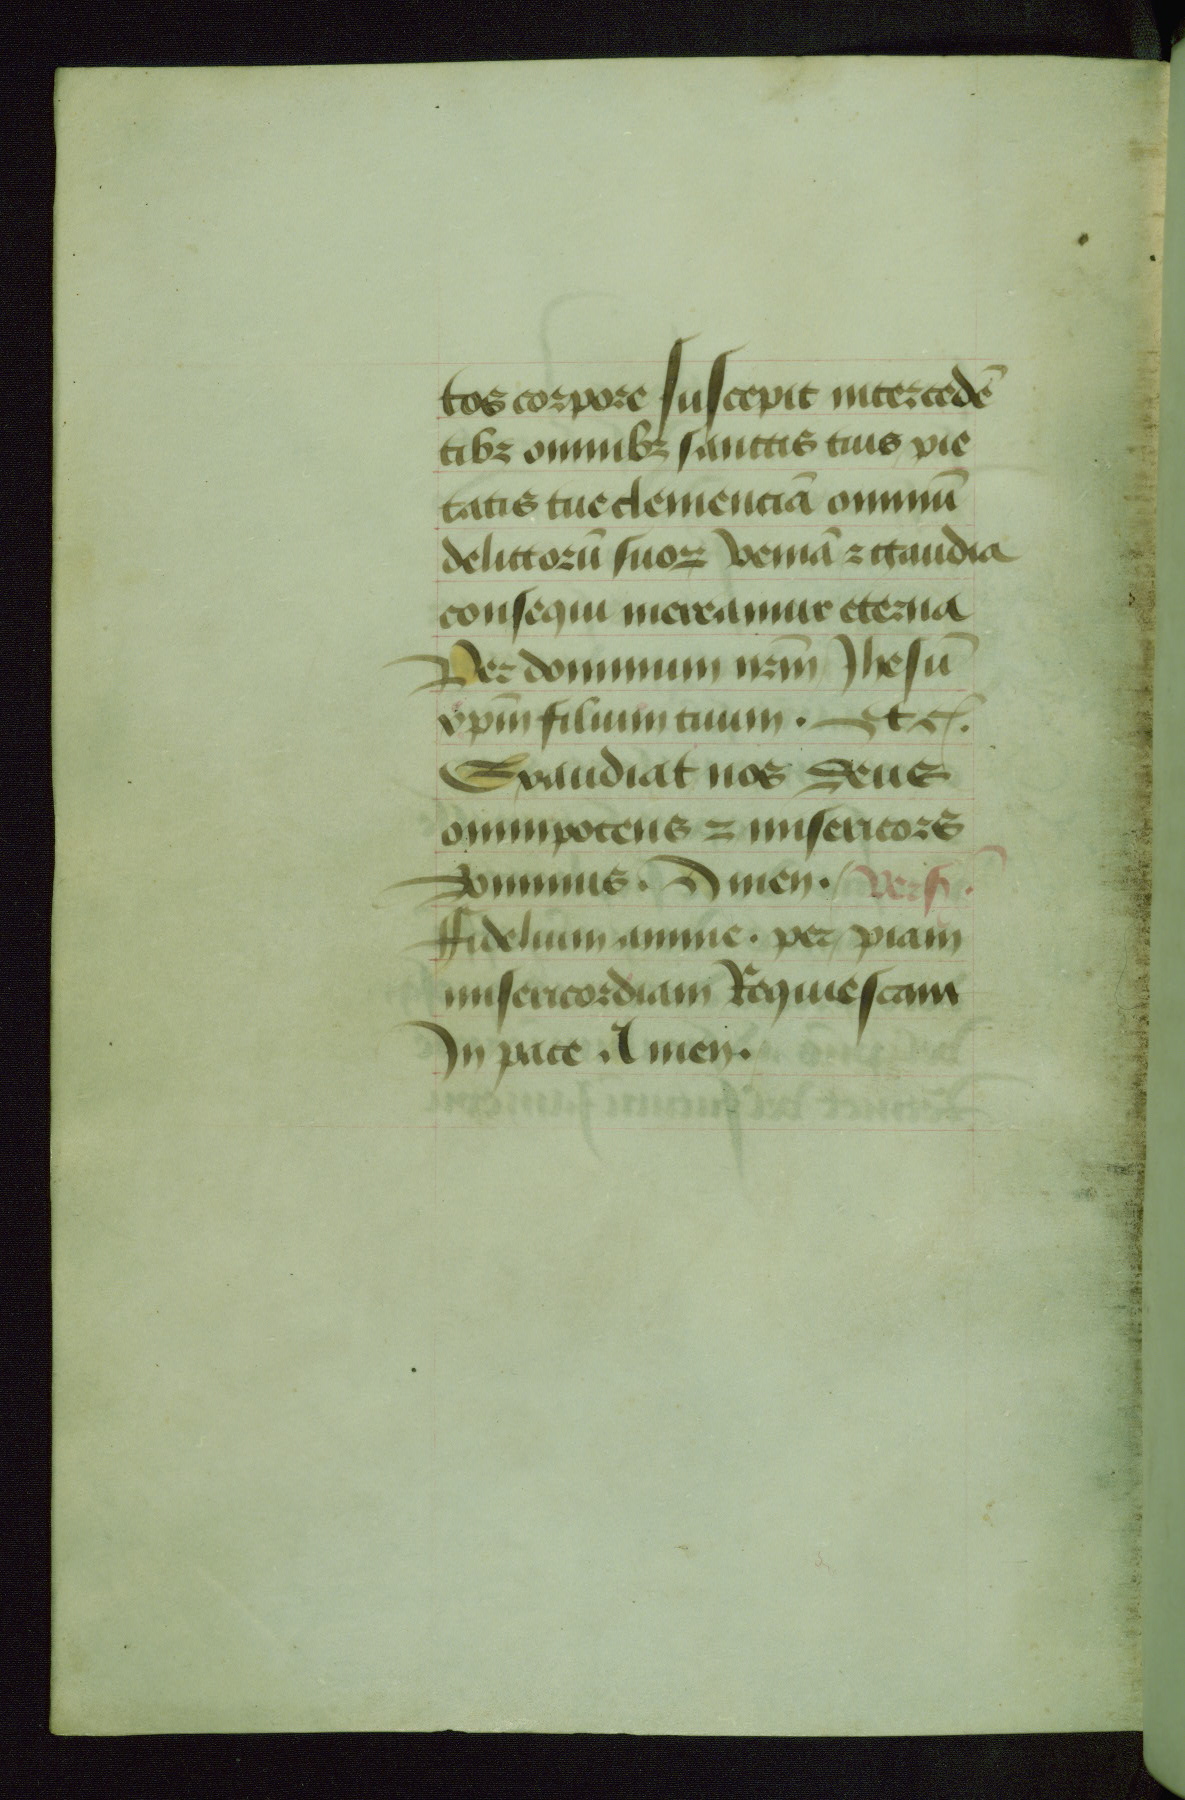 tos corpore suscepit intercedē
tibꝫ omnibꝫ sanctis tuis pie
tatis tue clemenciā omniū
delictorū suoꝝ veniā ⁊ gaudia
consequi mereamur eterna
Per dominum nr̄m Jhesū
xp̄m filium tuum. Et c̃.
Exaudiat nos Deus
omnipotens ⁊ misericors
Dominus. Amen. Vers̄.
ffidelium anime. per piam
misericordiam Requiescant
In pace. Amen.